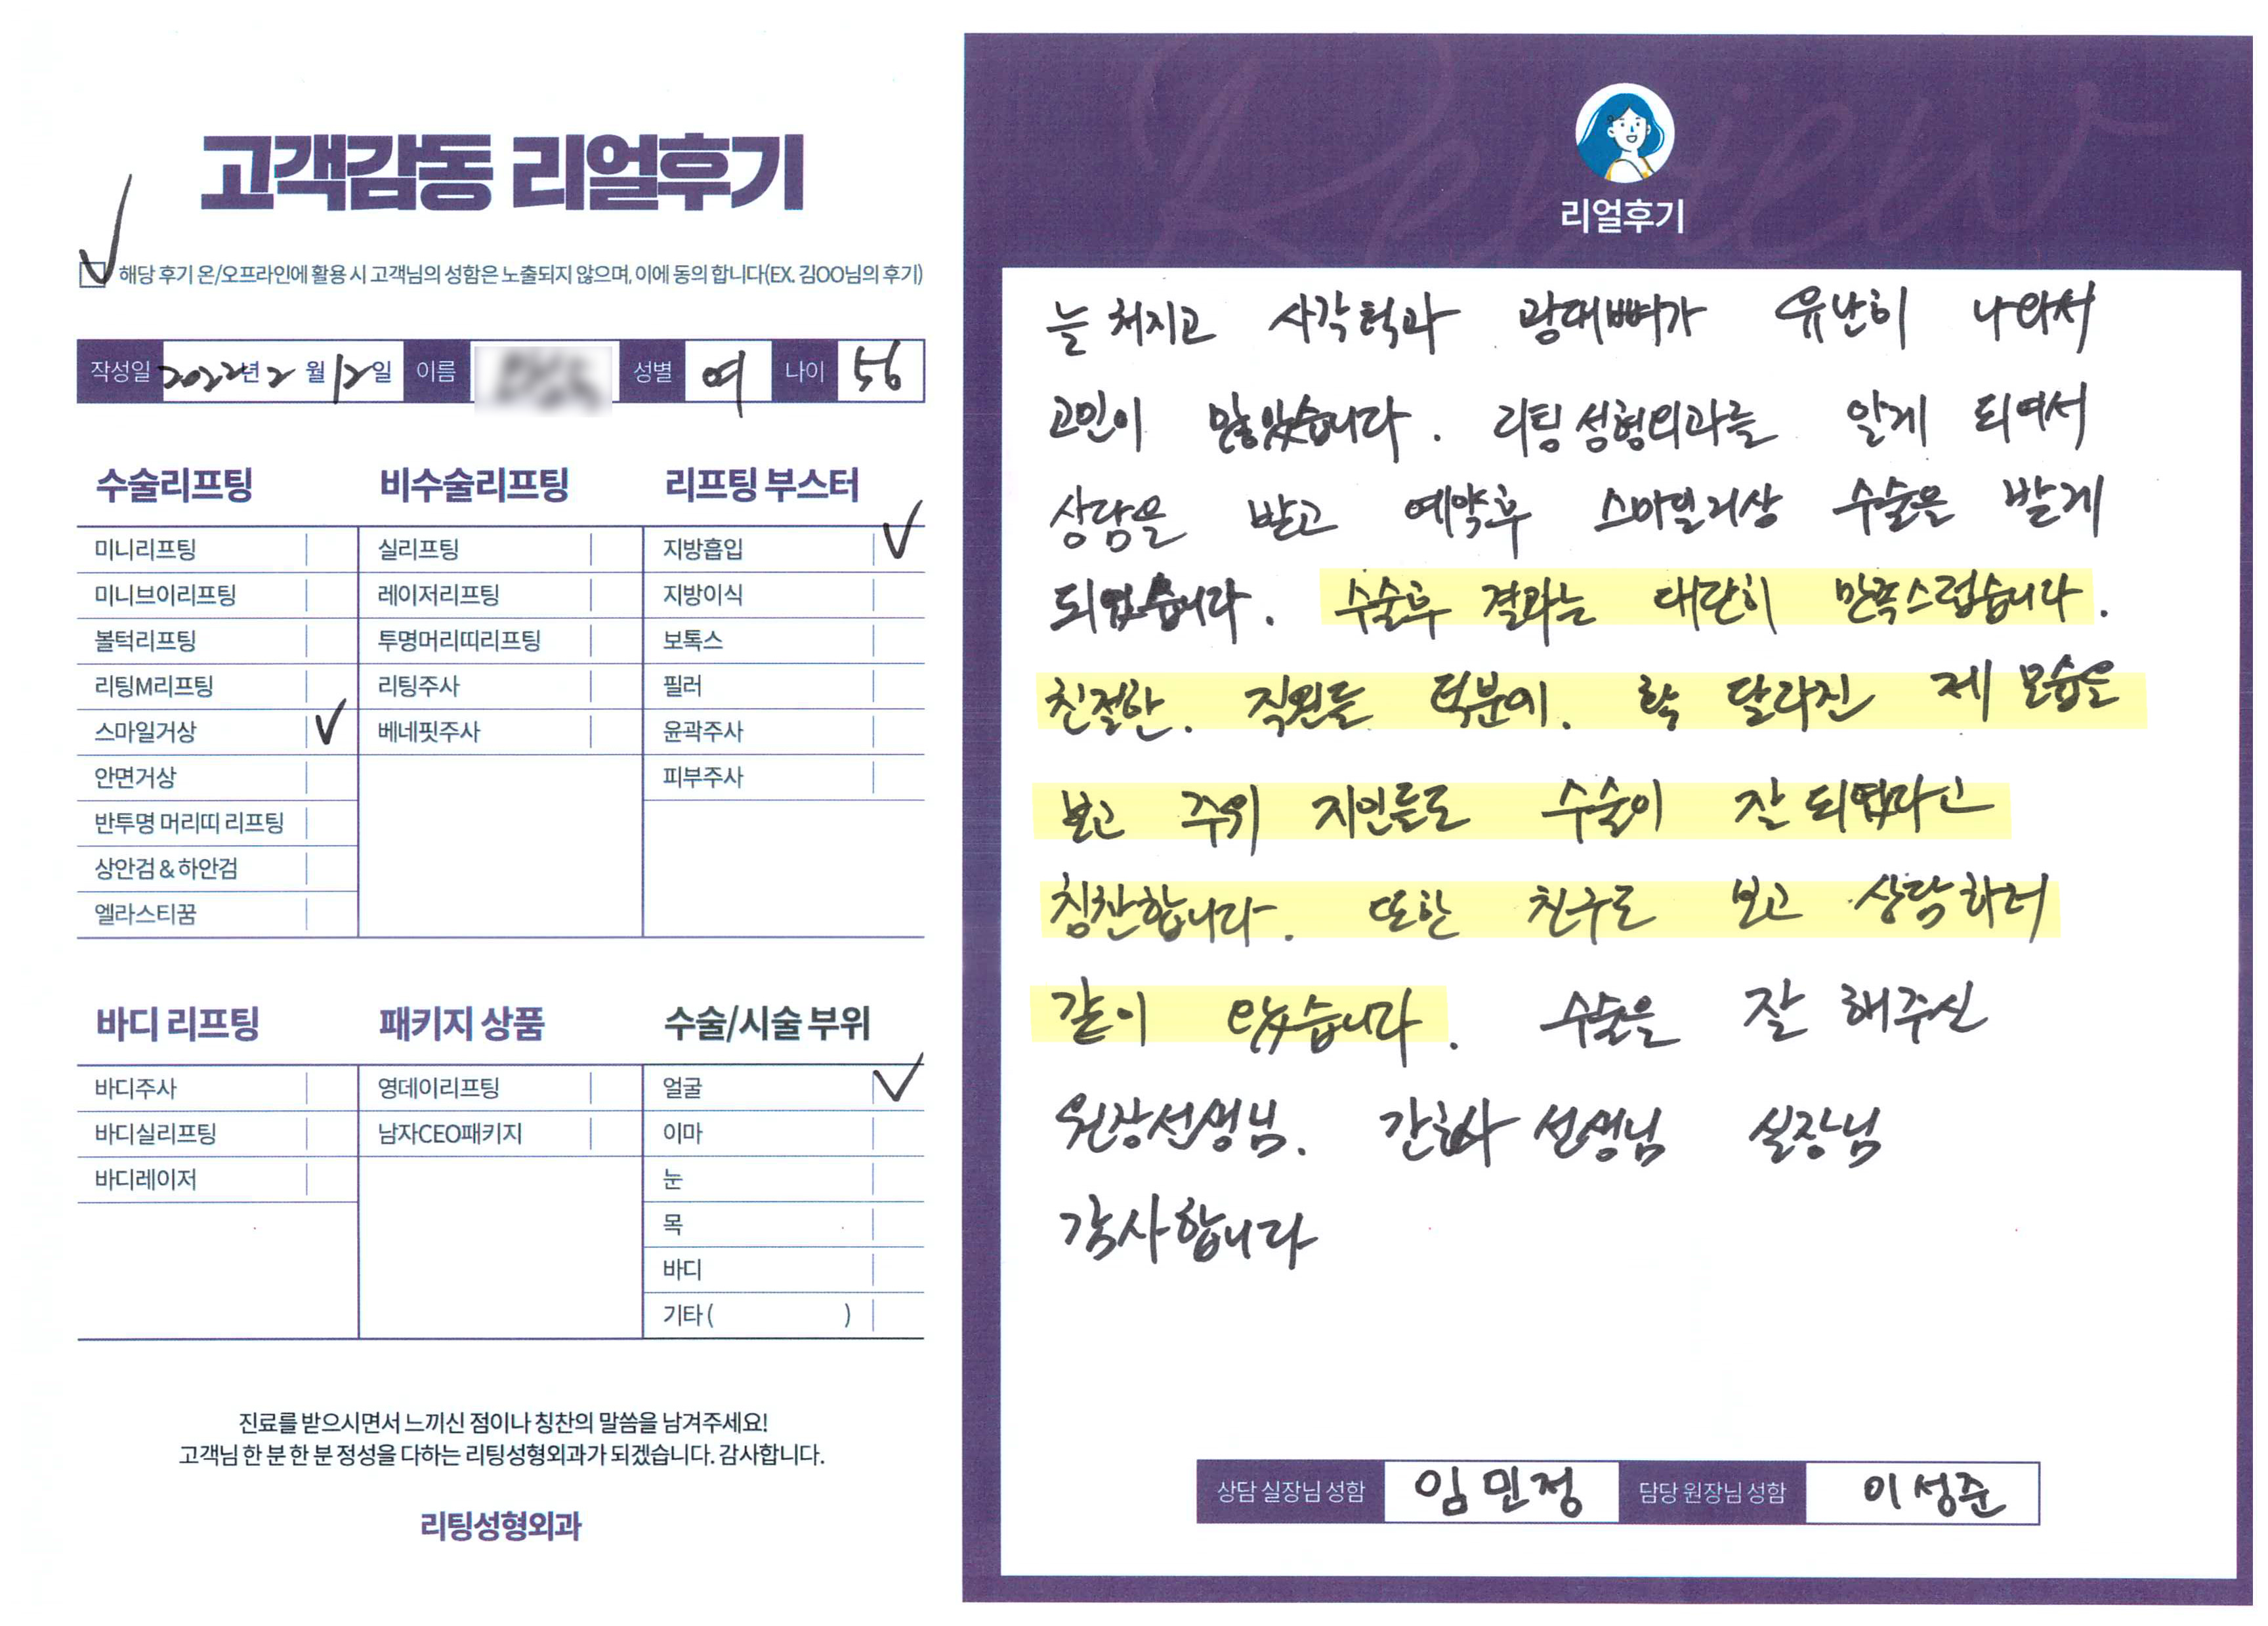 고객감동 리얼후기
해당 후기 온/오프라인에 활용 시 고객님의 성함은 노출되지 않으며, 이에 동의 합니다(EX. 김OO님의 후기)
작성일 2022년 2월 12일 이름 성별 여 나이 56
수술리프팅 비수술리프팅 리프팅 부스터
미니리프팅 실리프팅 지방흡입
미니브이리프팅 레이저리프팅 지방이식
볼턱리프팅 투명머리띠리프팅 보톡스
리팅M리프팅 리팅주사 필러
스마일거상 베네핏주사 윤곽주사
안면거상 피부주사
반투명 머리띠 리프팅
상안검 & 하안검
엘라스티꿈
바디 리프팅 패키지 상품 수술/시술 부위
바디주사 영데이리프팅 얼굴
바디실리프팅 남자CEO패키지 이마
바디레이저 눈
목
바디
기타 ( )
진료를 받으시면서 느끼신 점이나 칭찬의 말씀을 남겨주세요!
고객님 한 분 한 분 정성을 다하는 리팅성형외과가 되겠습니다. 감사합니다.
리팅성형외과
Review
리얼후기
늘 처지고 사각턱과 광대뼈가 유난히 나와서
고민이 많았습니다. 리팅성형외과를 알게 되여서
상담을 받고 예약후 스마일거상 수술을 받게
되였습니다. 수술후 결과는 대단히 만족스럽습니다.
친절한. 직원들 덕분에. 확 달라진 제 모습을
보고 주위 지인들도 수술이 잘 되였다고
칭찬합니다. 또한 친구도 보고 상담하러
같이 왔습니다. 수술을 잘 해주신
원장선생님. 간호사 선생님 실장님
감사합니다
상담 실장님 성함 임민정 담당 원장님 성함 이성준